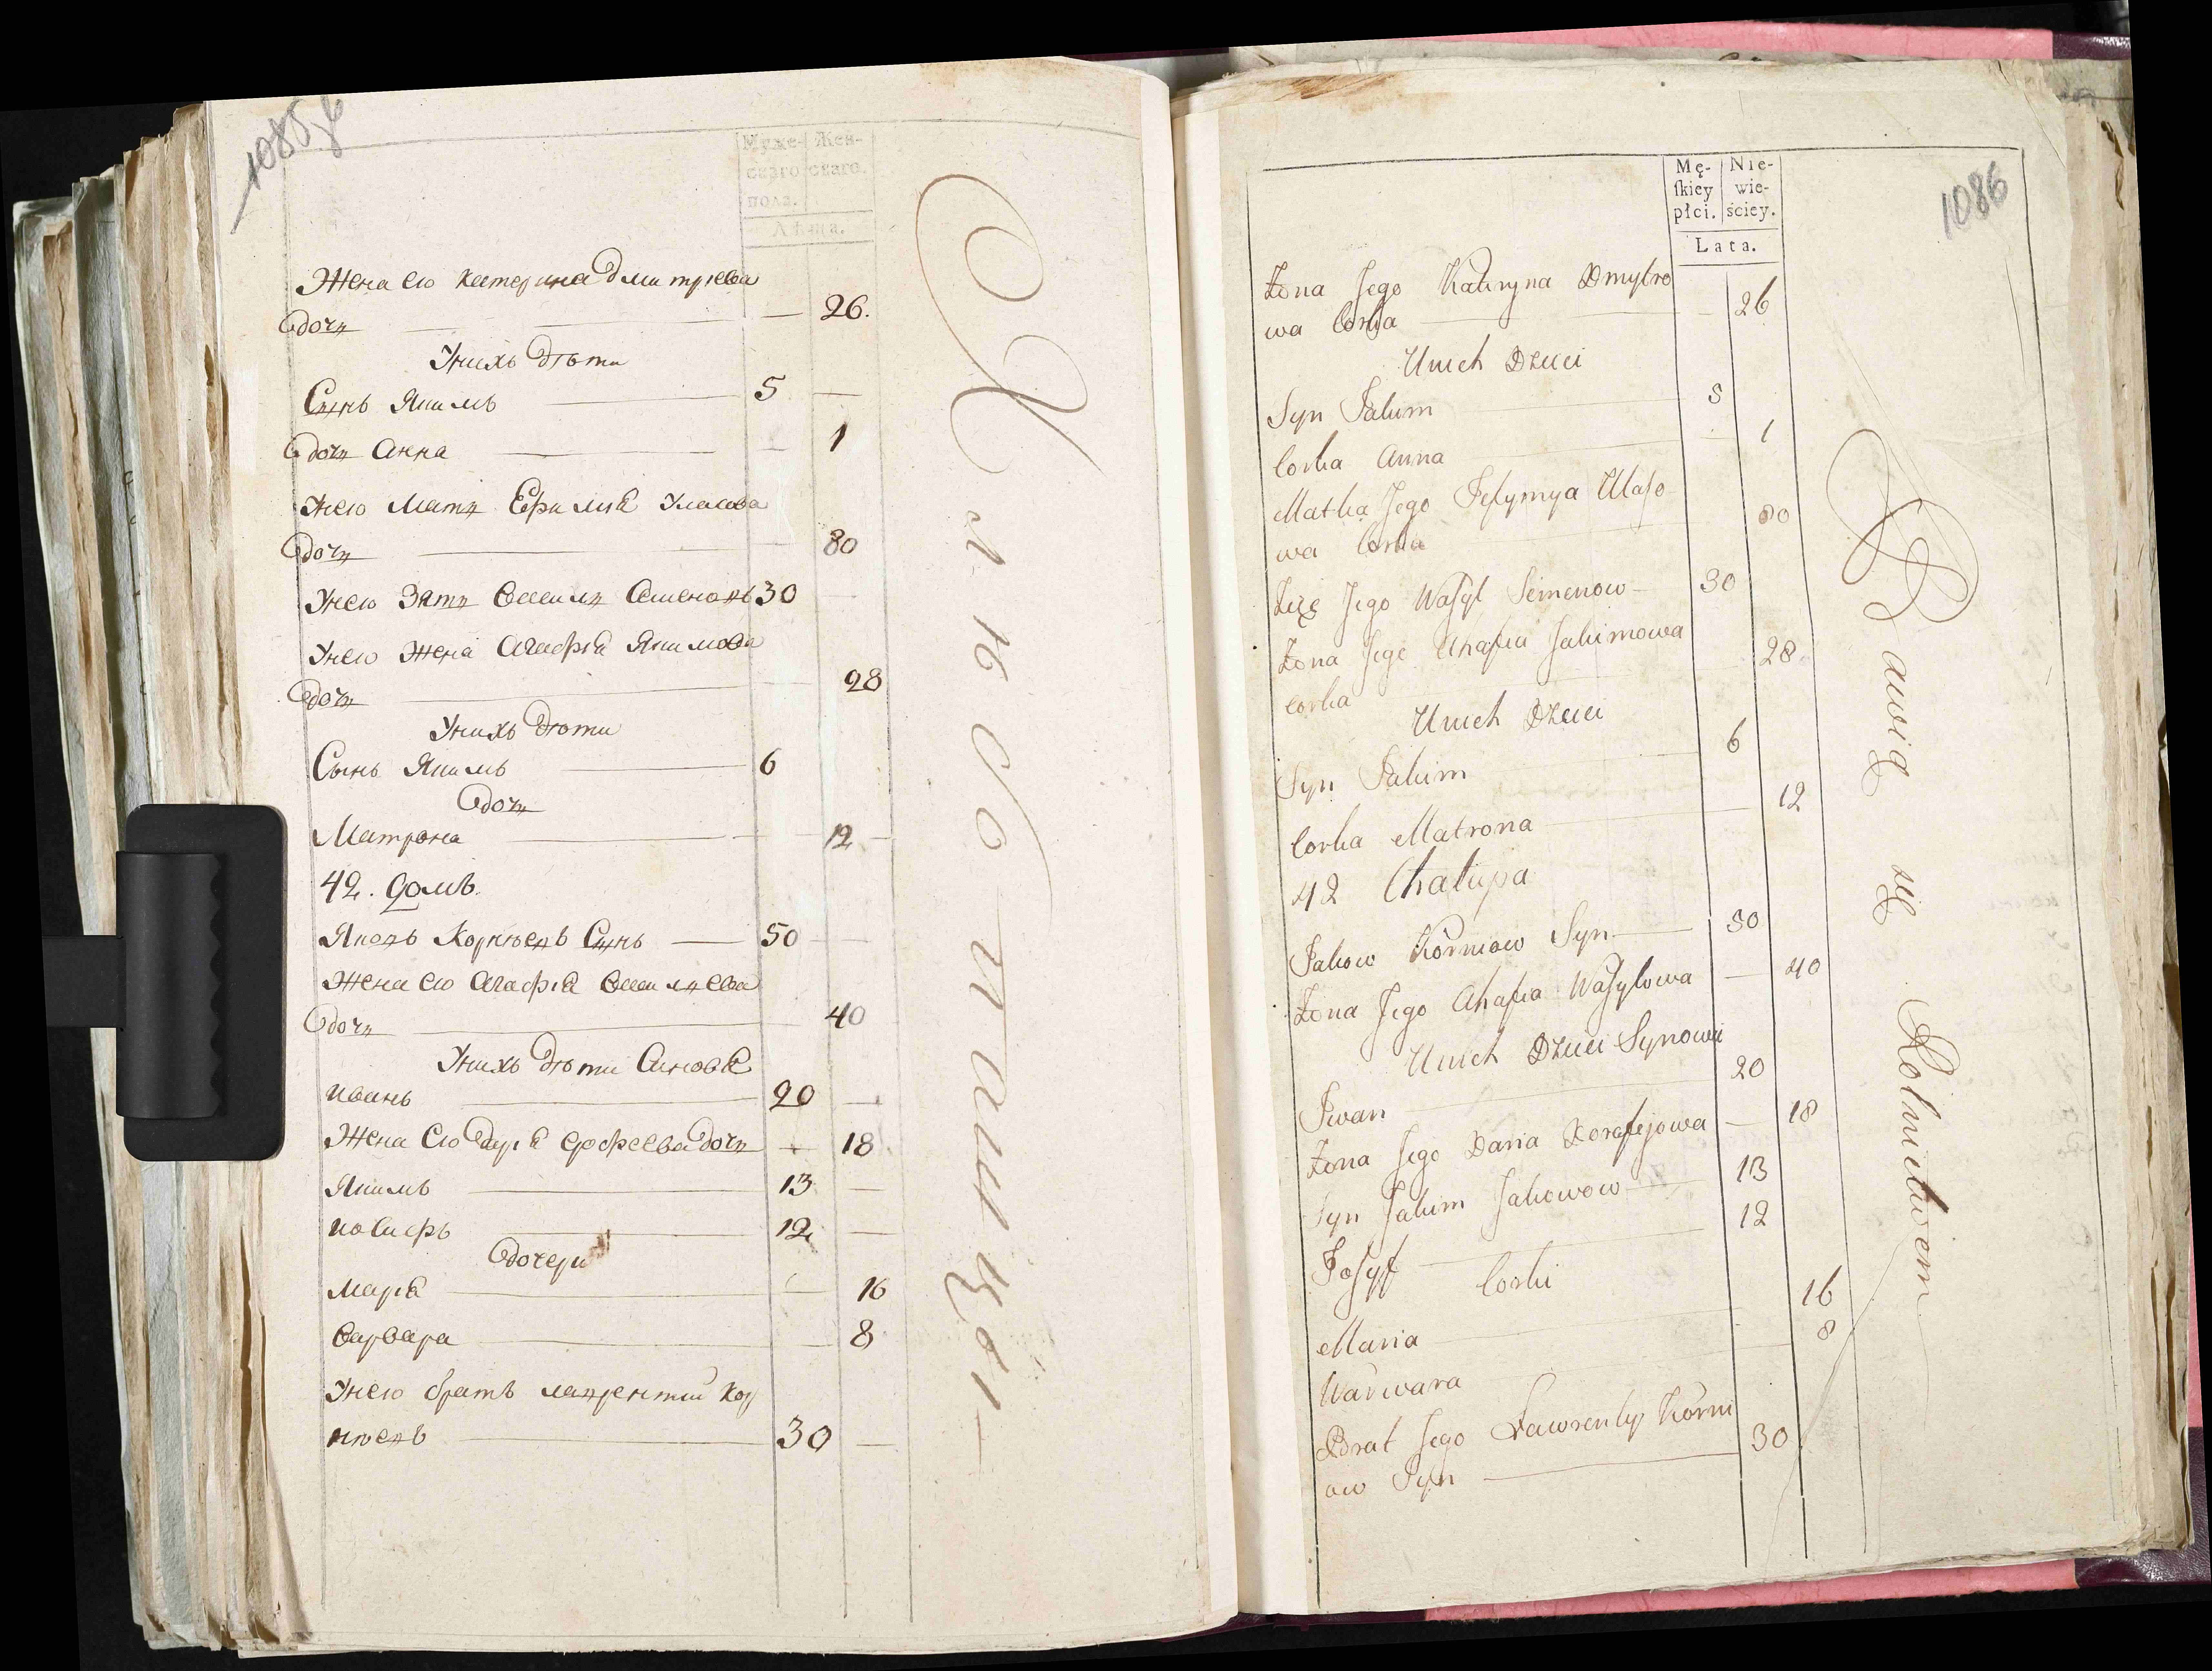 1085 об
Муже- Жен-
скаго скаго.
пола.
Лѣта.
Жена ею Катерина Дмитриева
дочь 26.
Унихъ дѣти
Сынъ Якимъ 5
дочь Анна 1
Унею Мать Ефимия Уласова
дочь 80
Унею Зять Василь Семеновъ 30
Унею Жена Агафия Якимова
дочь 28
Унихъ дѣти
Сынъ Якимъ 6
дочь
Матрона 12
42. домъ.
Яковъ Корнѣевъ Сынъ 50
Жена ею Агафия Васильева
дочь 40
Унихъ дѣти Синовя
иванъ 20
Жена Ею Даря ерофеева дочь 18
Якимъ 13
иосифъ 12
дочери
Мария 16
варвара 8
Унею братъ лаврентий Кор
нѣевъ 30
Хлюботашцы
1086
Mę- Nie-
skiey wie-
płci. ściey.
Lata.
Żona Jego Katiryna Dmytro
wa Corka 26
Unich Dzieci
Syn Jakim 5
Corka Anna 1
Matka Jego Jefymya Ułaso
wa Corka 80
Zięć Jego Wasyl Semenow 30
Żona Jego Ahafia Jakimowa
corka 28
Unich Dzieci
Syn Jakim 6
Corka Matrona 12
42 Chałupa
Jakow Korniow Syn 50
Żona Jego Ahafia Wasylowa 40
Unich Dzieci Synowie
Iwan 20
Żona Jego Daria Dorafejowa 18
Syn Jakim Jakowow 13
Josyf 12
Corki
Maria 16
Warwara 8
Brat Jego Lawrenty Korni
ow Syn 30
Bawią się Rolnictwem